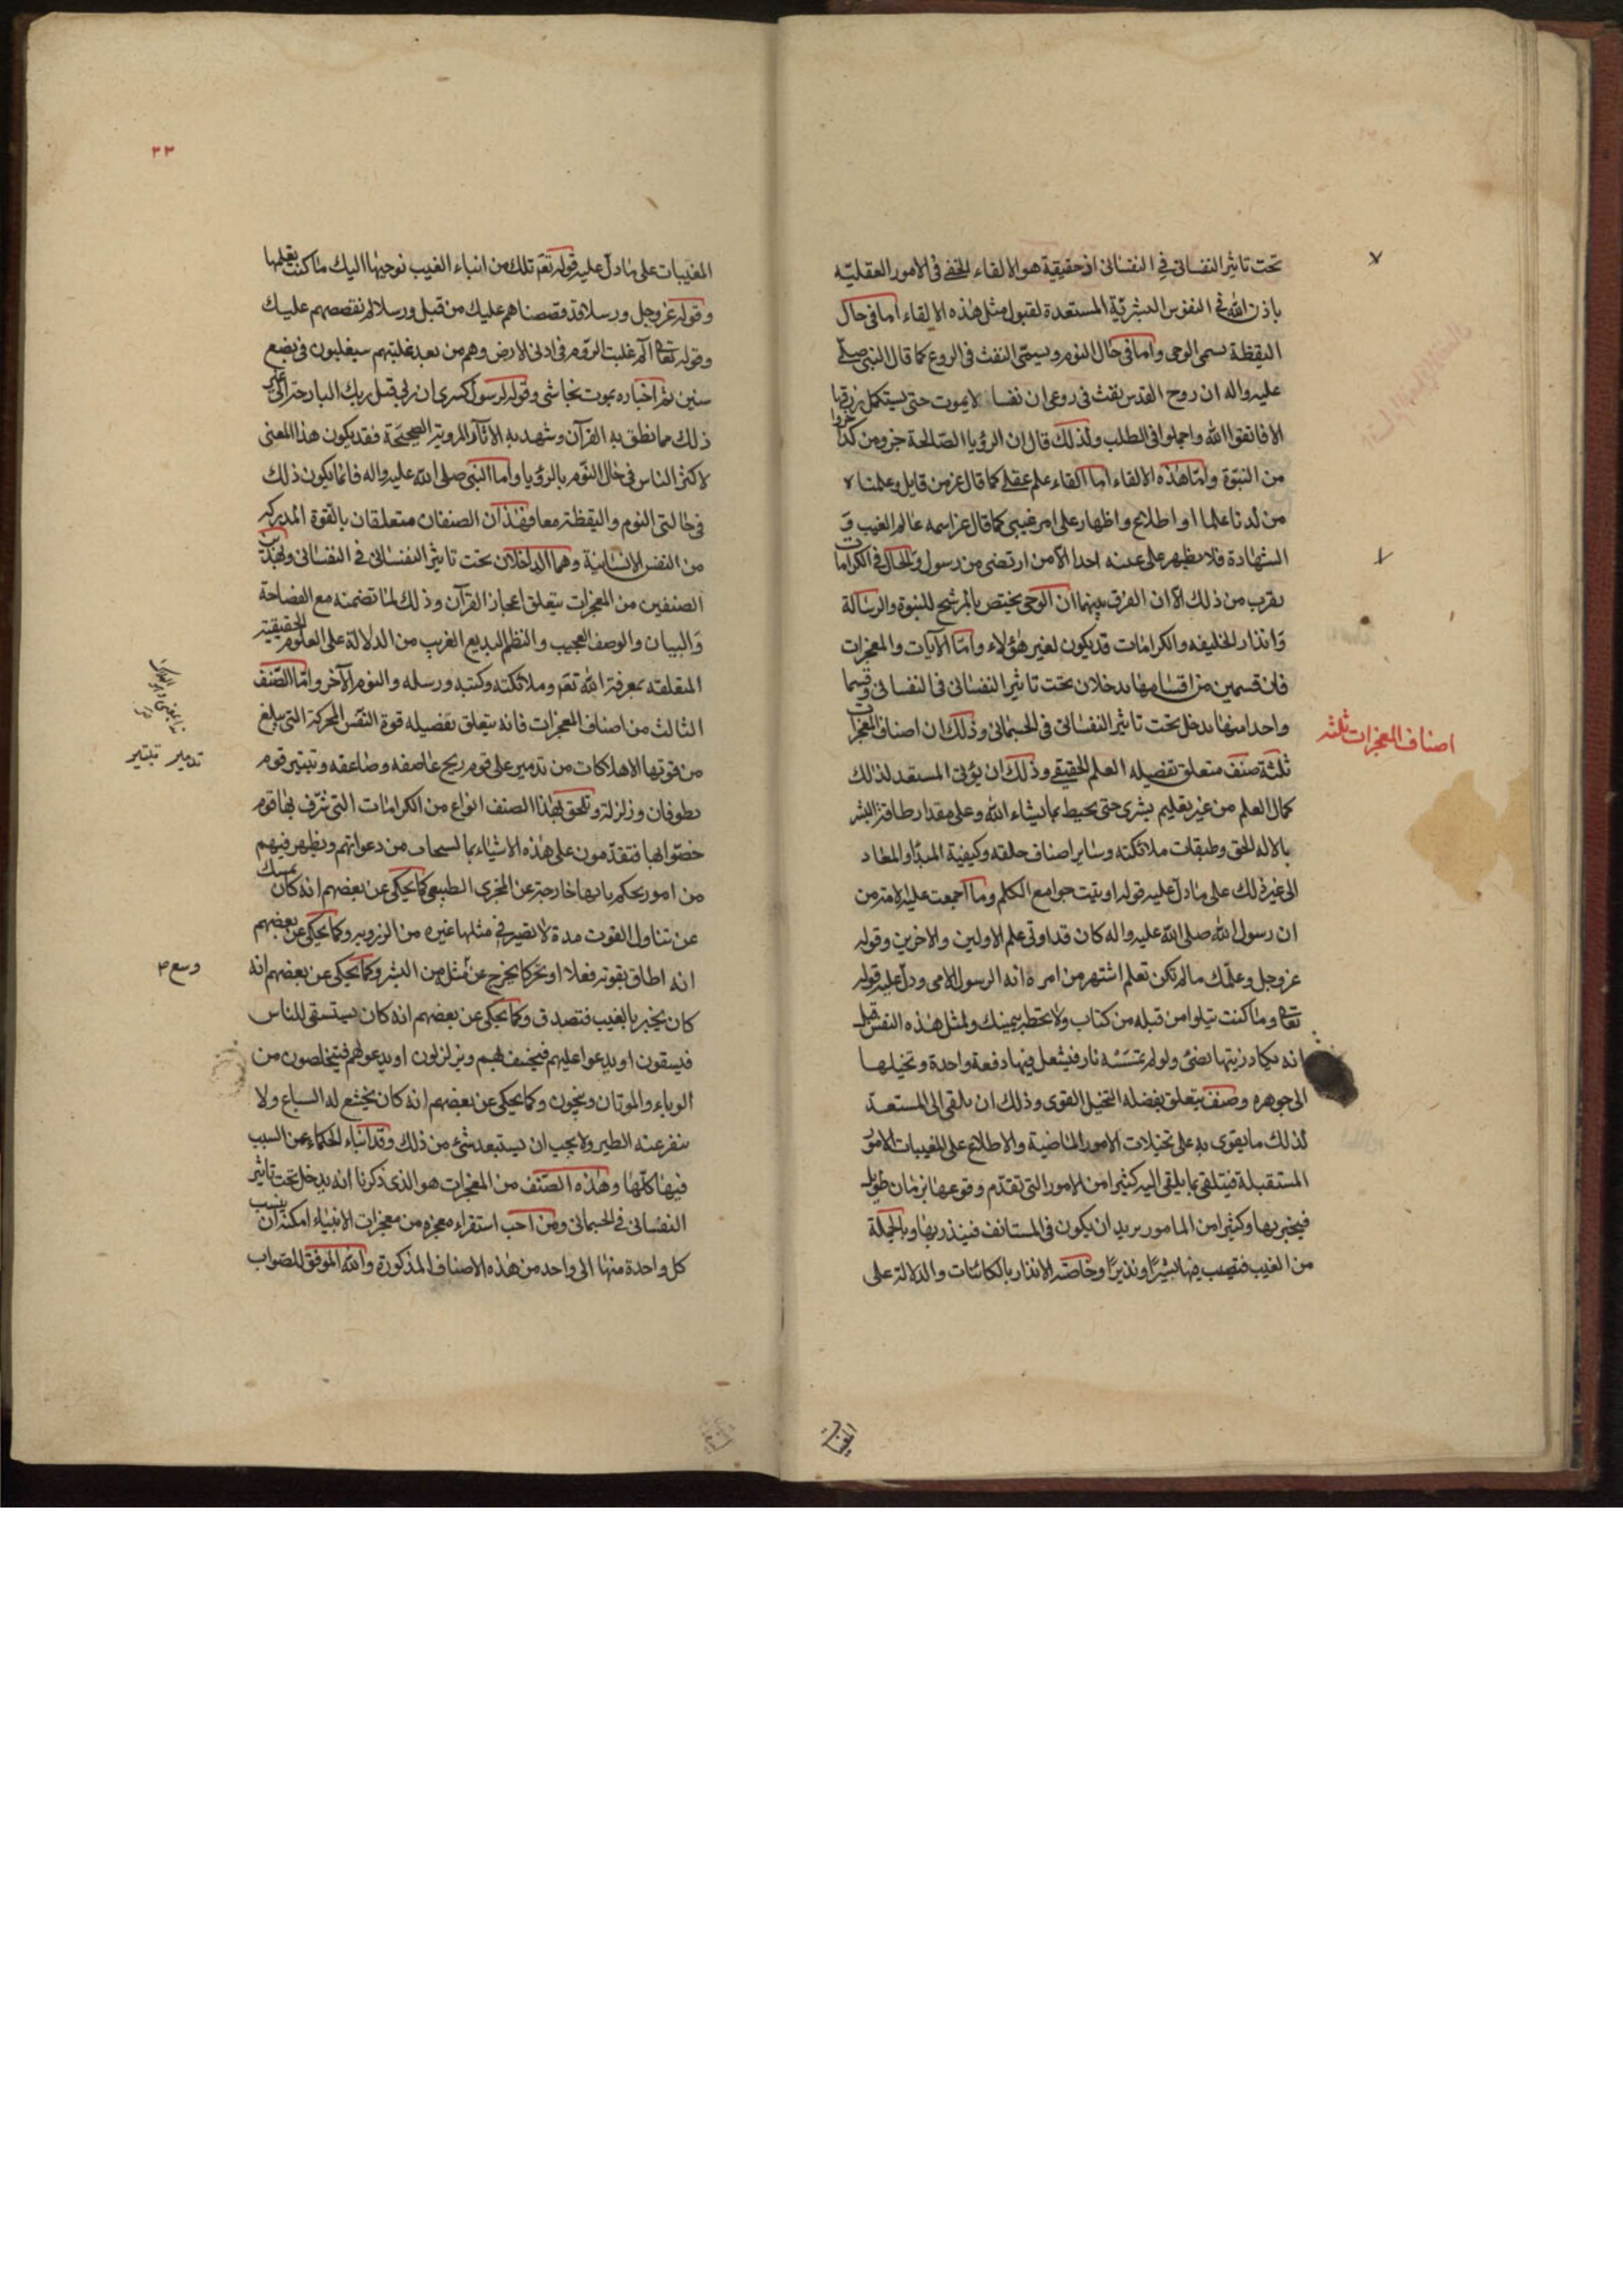 تحت تاثير النفسانى فى النفسانى اذ حقيقة هو الالقاء الخفى فى الامور العقليّة
باذن الله فى النفوس البشريّة المستعدة لقبول مثل هذه الالقاء اما فى حال
اليقظة يسمى الوحى واما فى حال النوم ويسمّى النفث فى الروع كما قال النبى صلى
عليه واله ان روح القدس نفث فى روعى ان نفسا لا يموت حتى يستكمل رزقها
الا فاتقوا الله واجملوا فى الطلب ولذلك قال ان الرؤيا الصّالحة جزو من كذا جزوا
من النبوّة وامّا هذه الالقاء اما القاء علم عقلى كما قال عز من قايل وعلمناه
من لدنا علما او اطلاع واظهار على امر غيبى كما قال عز اسمه عالم الغيب و
الشهادة فلا يظهر على غيبه احدا الا من ارتضى من رسول والحال فى الكرامات
يقرب من ذلك الا ان الفرق بينهما ان الوحى يختص بالمرشح للنبوة والرسالة
وانذار الخليقه والكرامات قد يكون لغير هؤلاء وامّا الآيات والمعجزات
فان قسمين من اقسامها يدخلان تحت تاثير النفسانى فى النفسانى وقسما
واحدا منها يدخل تحت تاثير النفسانى فى الجسمانى وذلك ان اصناف المعجزات
اصناف المعجزات ثلثه
ثلثة صنف متعلق بفضيله العلم الحقيقى وذلك ان يؤتى المستعد لذلك
كمال العلم من غير تعليم بشرى حتى يحيط بما يشاء الله وعلى مقدار طاقة البشر
بالاله الحق وطبقات ملائكته وساير اصناف خلقه وكيفية المبدأ والمعاد
الى غير ذلك على ما دلّ عليه قوله اوتيت جوامع الكلم وما اجمعت عليه الامة من
ان رسول الله صلى الله عليه واله كان قد اوتى علم الاولين والاخرين وقوله
عز وجل وعلّمك ما لم تكن تعلم اشتهر من امره انه الرسول الامى ودلّ عليه قوله
تعالى وما كنت تتلوا من قبله من كتاب ولا تخطه بيمينك ولمثل هذه النفس قيل
انه يكاد زيتها يضئ ولو لم تمسسه نار فيشعل فيها دفعة واحدة وتخيلها
الى جوهره وصنف يتعلق بفضله التخيل القوى وذلك ان يلقى الى المستعد
لذلك ما يقوى به على تخيلات الامور الماضية والاطلاع على المغيبات الامور
المستقبلة فيتلقى بما يلقى اليه كثيرا من الامور التى تقدّم وقوعها بزمان طويل
فيخبر بها وكثيرا من المامور يريد ان يكون فى المستانف فينذر بها وبالجملة
من الغيب فتصيب فيها بشيرًا ونذيرًا وخاصّه الانذار بالكائنات والدلالة على
٢٣
المغيبات على ما دلّ عليه قوله تعم تلك من انباء الغيب نوحيها اليك ما كنت تعلمها
وقوله عز وجل ورسلا قد قصصناهم عليك من قبل ورسلا لم نقصصهم عليك
وقوله تعالى الم غلبت الروم فى ادنى الارض وهم من بعد غلبهم سيغلبون فى بضع
سنين ثم اخباره بموت نجاشى وقوله لرسول كسرى ان ربى قتل ربك البارحة الى غير
ذلك مما نطق به القرآن وشهد به الآثار المروية الصحيحة فقد يكون هذا المعنى
لاكثر الناس فى حال النّوم بالرؤيا واما النبى صلى الله عليه واله فانما يكون ذلك
فى حالتى النوم واليقظة معا فهذان الصنفان متعلقان بالقوة المدركه
من النفس الانسانية وهما الداخلان تحت تاثير النفسانى فى النفسانى وبهذين
الصنفين من المعجزات يتعلق اعجاز القرآن وذلك لما تضمنه مع الفصاحة
والبيان والوصف العجيب والنظم البديع الغريب من الدلالة على العلوم الحقيقية
المتعلقه بمعرفة الله تعم وملائكته وكتبه ورسله واليوم الآخر وامّا الصّنف
الثالث من اصناف المعجزات فانه يتعلق بفضيله قوة النفس المحركة التى يبلغ
من قوتها الاهلاكات من تدمير على قوم ريح عاصفه وصاعقه وتبتير قوم
تدمير تبتير
بطوفان وزلزلة وتلحق بهذا الصنف انواع من الكرامات التى شرّف بها قوم
خصّوا بها فتقدّمون على هذه الاشياء بالمستجاب من دعواتهم ويظهر فيهم
من امور يحكم بانها خارجة عن المجرى الطبيعى كما يحكى عن بعضهم انه كان يمسك
عن تناول القوت مدة لا يصير فى مثلها غيره وكما يحكى عن بعضهم
انه اطاق بقوته فعلا او تحركا يخرج عن مثله من البشر وكما يحكى عن بعضهم انه
كان يخبر بالغيب فتصدق وكما يحكى عن بعضهم انه كان يستسقى للناس
فيسقون او يدعوا عليهم فيخسف بهم ويزلزلون او يدعو لهم فيتخلصون من
الوباء والموتان وينجون وكما يحكى عن بعضهم انه كان يخشع له السباع ولا
ينفر عنه الطير ولا يجب ان يستبعد شئ من ذلك وقد انباء الحكماء عن السبب
فيها كلّها وهذه الصّنف من المعجزات هو الذى ذكرنا انه يدخل تحت تاثير
النفسانى فى الجسمانى ومن احب استقراء معجزه من معجزات الانبياء امكنه ان ينسب
كل واحدة منها الى واحد من هذه الاصناف المذكورة والله الموفق للصّواب